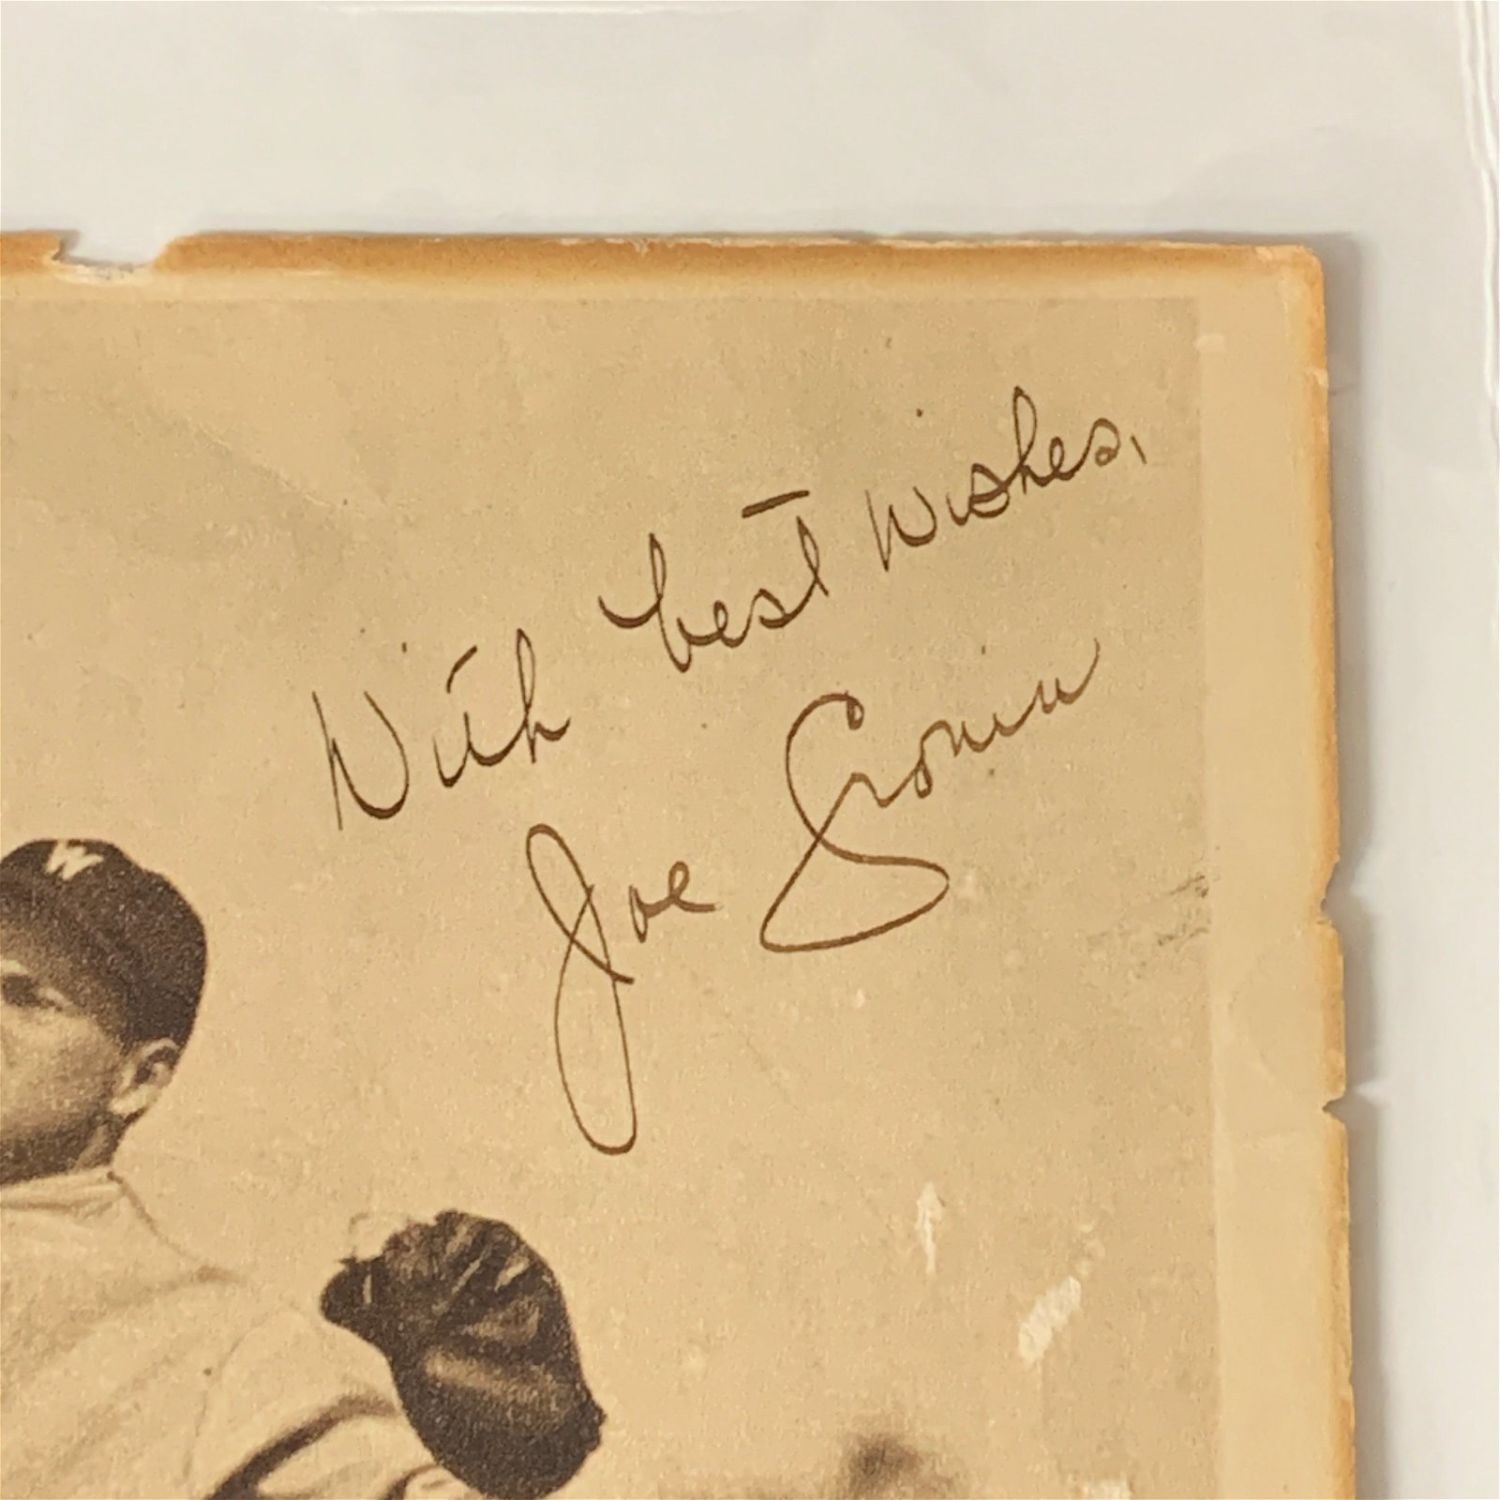 With best wishes,
Joe Cronin
W